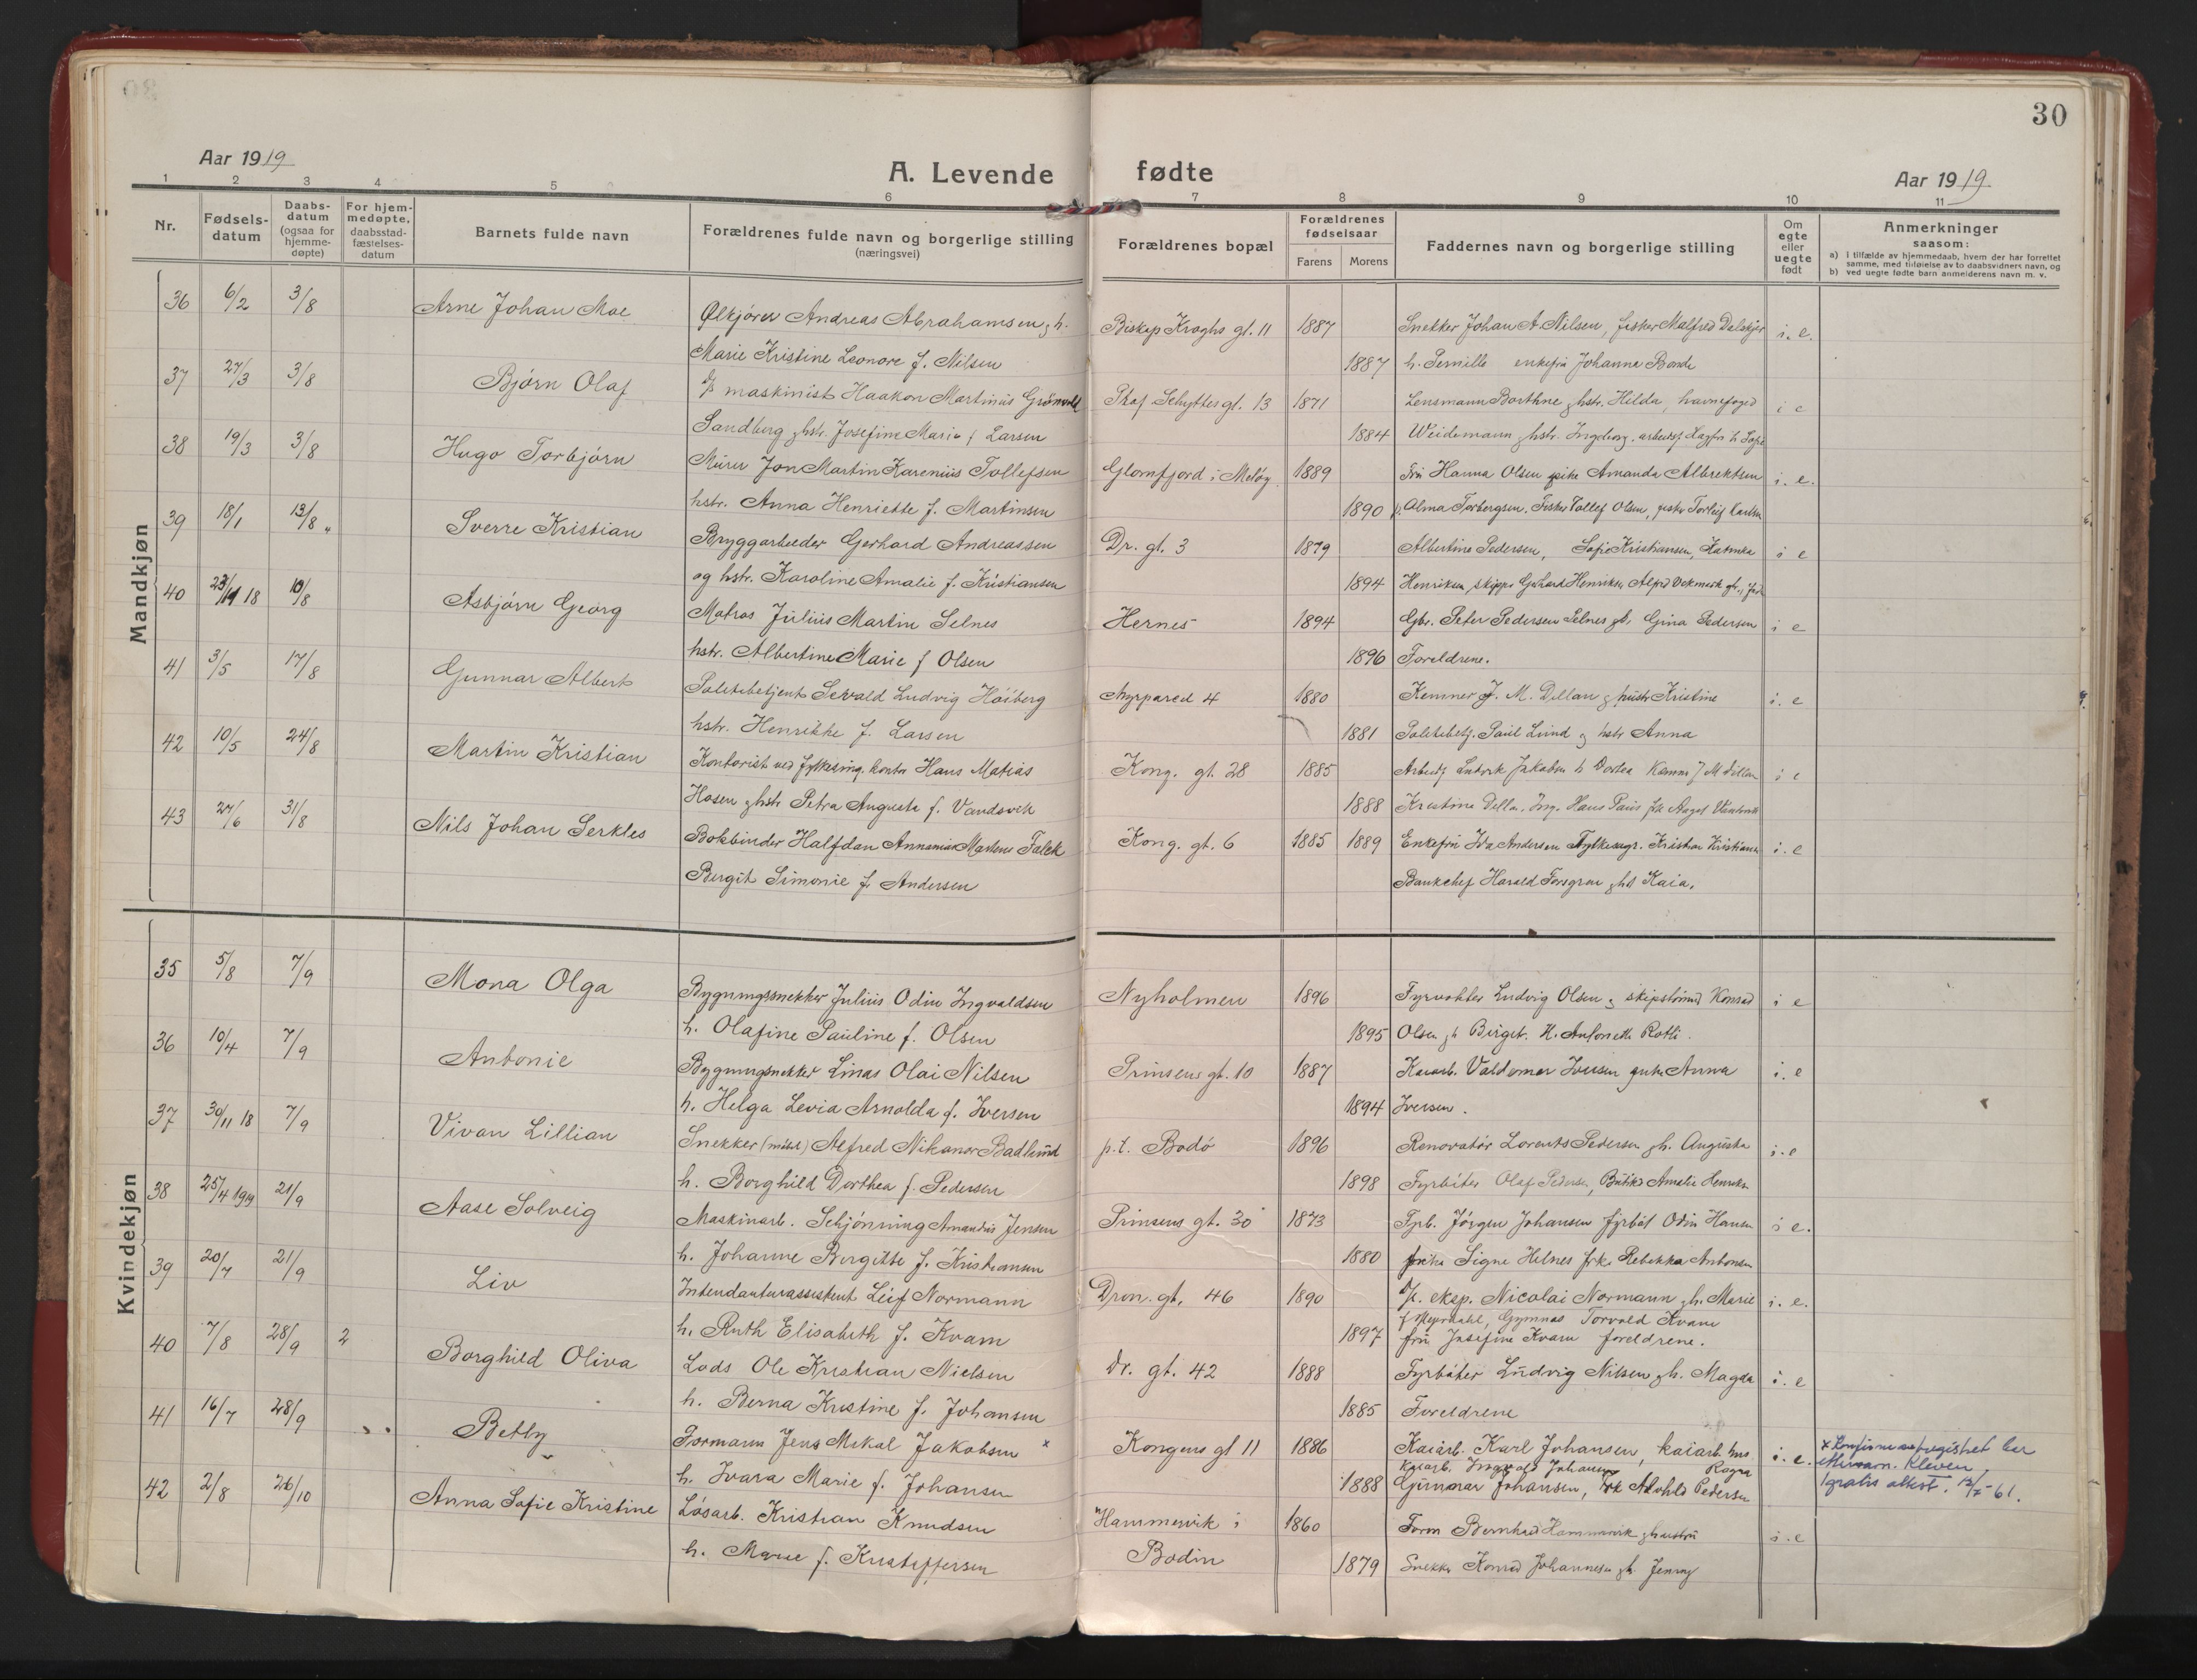 30
Aar 1919
A. Levende fødte
Aar 1919
1 2 3 4 5 6 7 8 9 10 11
Nr.
Fødsels-
datum
Daabs-
datum
(ogsaa for
hjemme-
døpte)
For hjem-
medøpte,
daabsstad-
fæstelses-
datum
Barnets fulde navn
Forældrenes fulde navn og borgerlige stilling
(næringsvei)
Forældrenes bopæl
Forældrenes
fødselsaar
Farens Morens
Faddernes navn og borgerlige stilling
Om
egte
eller
uegte
født
Anmerkninger
saasom:
a) I tilfælde av hjemmedaab, hvem der har forrettet
samme, med tilføielse av to daabsvidners navn, og
b) ved uegte fødte barn anmelderens navn m. v.
Mandkjøn
36 6/2 3/8 Arne Johan Moe Ølkjörer Andreas Abrahamsen g h. Biskop Kroghs gt. 11 1887 Snekker Johan A. Nilsen, fisker Malfred i. e.
Marie Kristine Leonore f. Nilsen 1887 h. Pernille enkefru Johanna Bonde
37 27/3 3/8 Björn Olaf D/s maskinist Haakon Martinus Grönvold Prof Schyttes gt. 13 1871 Lensmann Borthne g hstr. Hilda, havnefoged i e
Sandberg g hstr. Josefine Marie f Larsen 1884 Weidemann g hstr. Ingeborg. arbeidsf
38 19/3 3/8 Hugo Torbjörn Murer Jon Martin Karenius Tollefsen Glomfjord i Melöy 1889 Fru Hanna Olsen pike Amanda Albrektsen i. e.
hstr. Anna Henriette f. Martinsen 1890 Alma Torbergsen. Fisker Tollef Olsen, fisker Torleif Karlsen
39 18/1 13/8 Sverre Kristian Bryggarbeider Gerhard Andreassen Dr. gt. 3 1879 Albertine Pedersen, Sofie Kristiansen, Katinka i e
og hstr. Karoline Amalie f. Kristiansen 1894 Henriksen, skipper Gerhard Henriksen Alfred
40 23/11 18 10/8 Asbjörn Georg Matros Julius Martin Selnes Hernes 1894 Gbr. Peter Pedersen Selnes g h. Gina Pedersen i e
hstr. Albertine Marie f Olsen 1896 Foreldrene.
41 3/5 17/8 Gunnar Albert Politibetjent Sevald Ludvig Höiberg Nyrpared 4 1880 Kemner J. M. Dillan g hustr Kristine i. e
hstr. Henrikke f. Larsen 1881 Politibetj. Paul Lund g hstr Anna
42 10/5 24/8 Martin Kristian Kontorist ved fylkesing. kontor Hans Matias Kong. gt. 28 1885 Arbeidsf Ludvik Jakobsen h Dortea Kemner J M Dillan i e
Hosen g hstr Petra Augusta f. Vandsvik 1888 Kristine Dillan, Ing. Hans
43 27/6 31/8 Nils Johan Serkles Bokbinder Halfdan Annanias Martens Falck Kong. gt. 6 1885 1889 Enkefru Ida Andersen Fylkesagr. Kristian Kristiansen i. e
Bergit Simonie f. Andersen Bankchef Harald Forsgren g h Kaia.
Kvindekjøn
35 5/8 7/9 Mona Olga Bygningssnekker Julius Odin Ingvaldsen Nyholmen 1896 Fyrvokter Ludvig Olsen g skipstömmerm Konrad i e
h. Olafine Pauline f. Olsen 1895 Olsen g h Birgit. H. Antonette Rotli.
36 10/4 7/9 Antonie Bygningsnekker Linas Olai Nilsen Prinsens gt. 10 1887 Kaiarb. Valdemar Iversen g h Anna i. e
h. Helga Levia Arnolda f. Iversen 1894 Iversen.
37 30/11 18 7/9 Vivan Lillian Snekker (möbel) Alfred Nikanor Badlund p.t. Bodö 1896 Renovatör Lorents Pedersen g h. Augusta i. e
h. Borghild Dorthea f. Pedersen 1898 Fyrböter Olaf Pedersen, Butikd Amalie Henriksen
38 25/4 1919 21/9 Aase Solveig Maskinarb. Schjönning Amandus Jensen Prinsens gt. 30 1873 Fyrb. Jörgen Johansen fyrböt Odin Hansen i e.
h. Johanne Bergitte f. Kristiansen 1880 Signe Helnes frk. Rebekka Antonsen
39 20/7 21/9 Liv Intendanturassistent Leif Normann Dron. gt. 46 1890 D/s. eksp. Nicolai Normann g h. Marie i. e.
h. Ruth Elisabeth f. Kvam 1897 f Meyerdahl, Gymnas Torvald Kvam
fru Josefine Kvam foreldrene.
40 7/8 28/9 2 Borghild Oliva Lods Ole Kristian Nielsen Dr. gt. 42 1888 Fyrböter Ludvig Nilsen g h. Magda i. e
h. Berna Kristine f. Johansen 1885 Foreldrene
41 16/7 28/9 Betly Formann Jens Mikal Jakobsen x Kongens gt 11 1886 Kaiarb. Karl Johansen, kaiarb. hus i. e. x Konfirmasjonsregistret har
kaiarb. Ingvald Johansen Ragna etternavn. Kleven
h. Ivara Marie f. Johansen 1888 Gunnar Johansen, Frk Alvhld Pedersen 1 gratis attest. 12/5-61.
42 2/8 26/10 Anna Sofie Kristine Lösarb. Kristian Knudsen Hammervik i 1860 Form Bernhard Hammervik g hustru i. e
h. Marie f. Kristoffersen Bodin 1879 Snekker Konrad Johannesen g h. Jenny